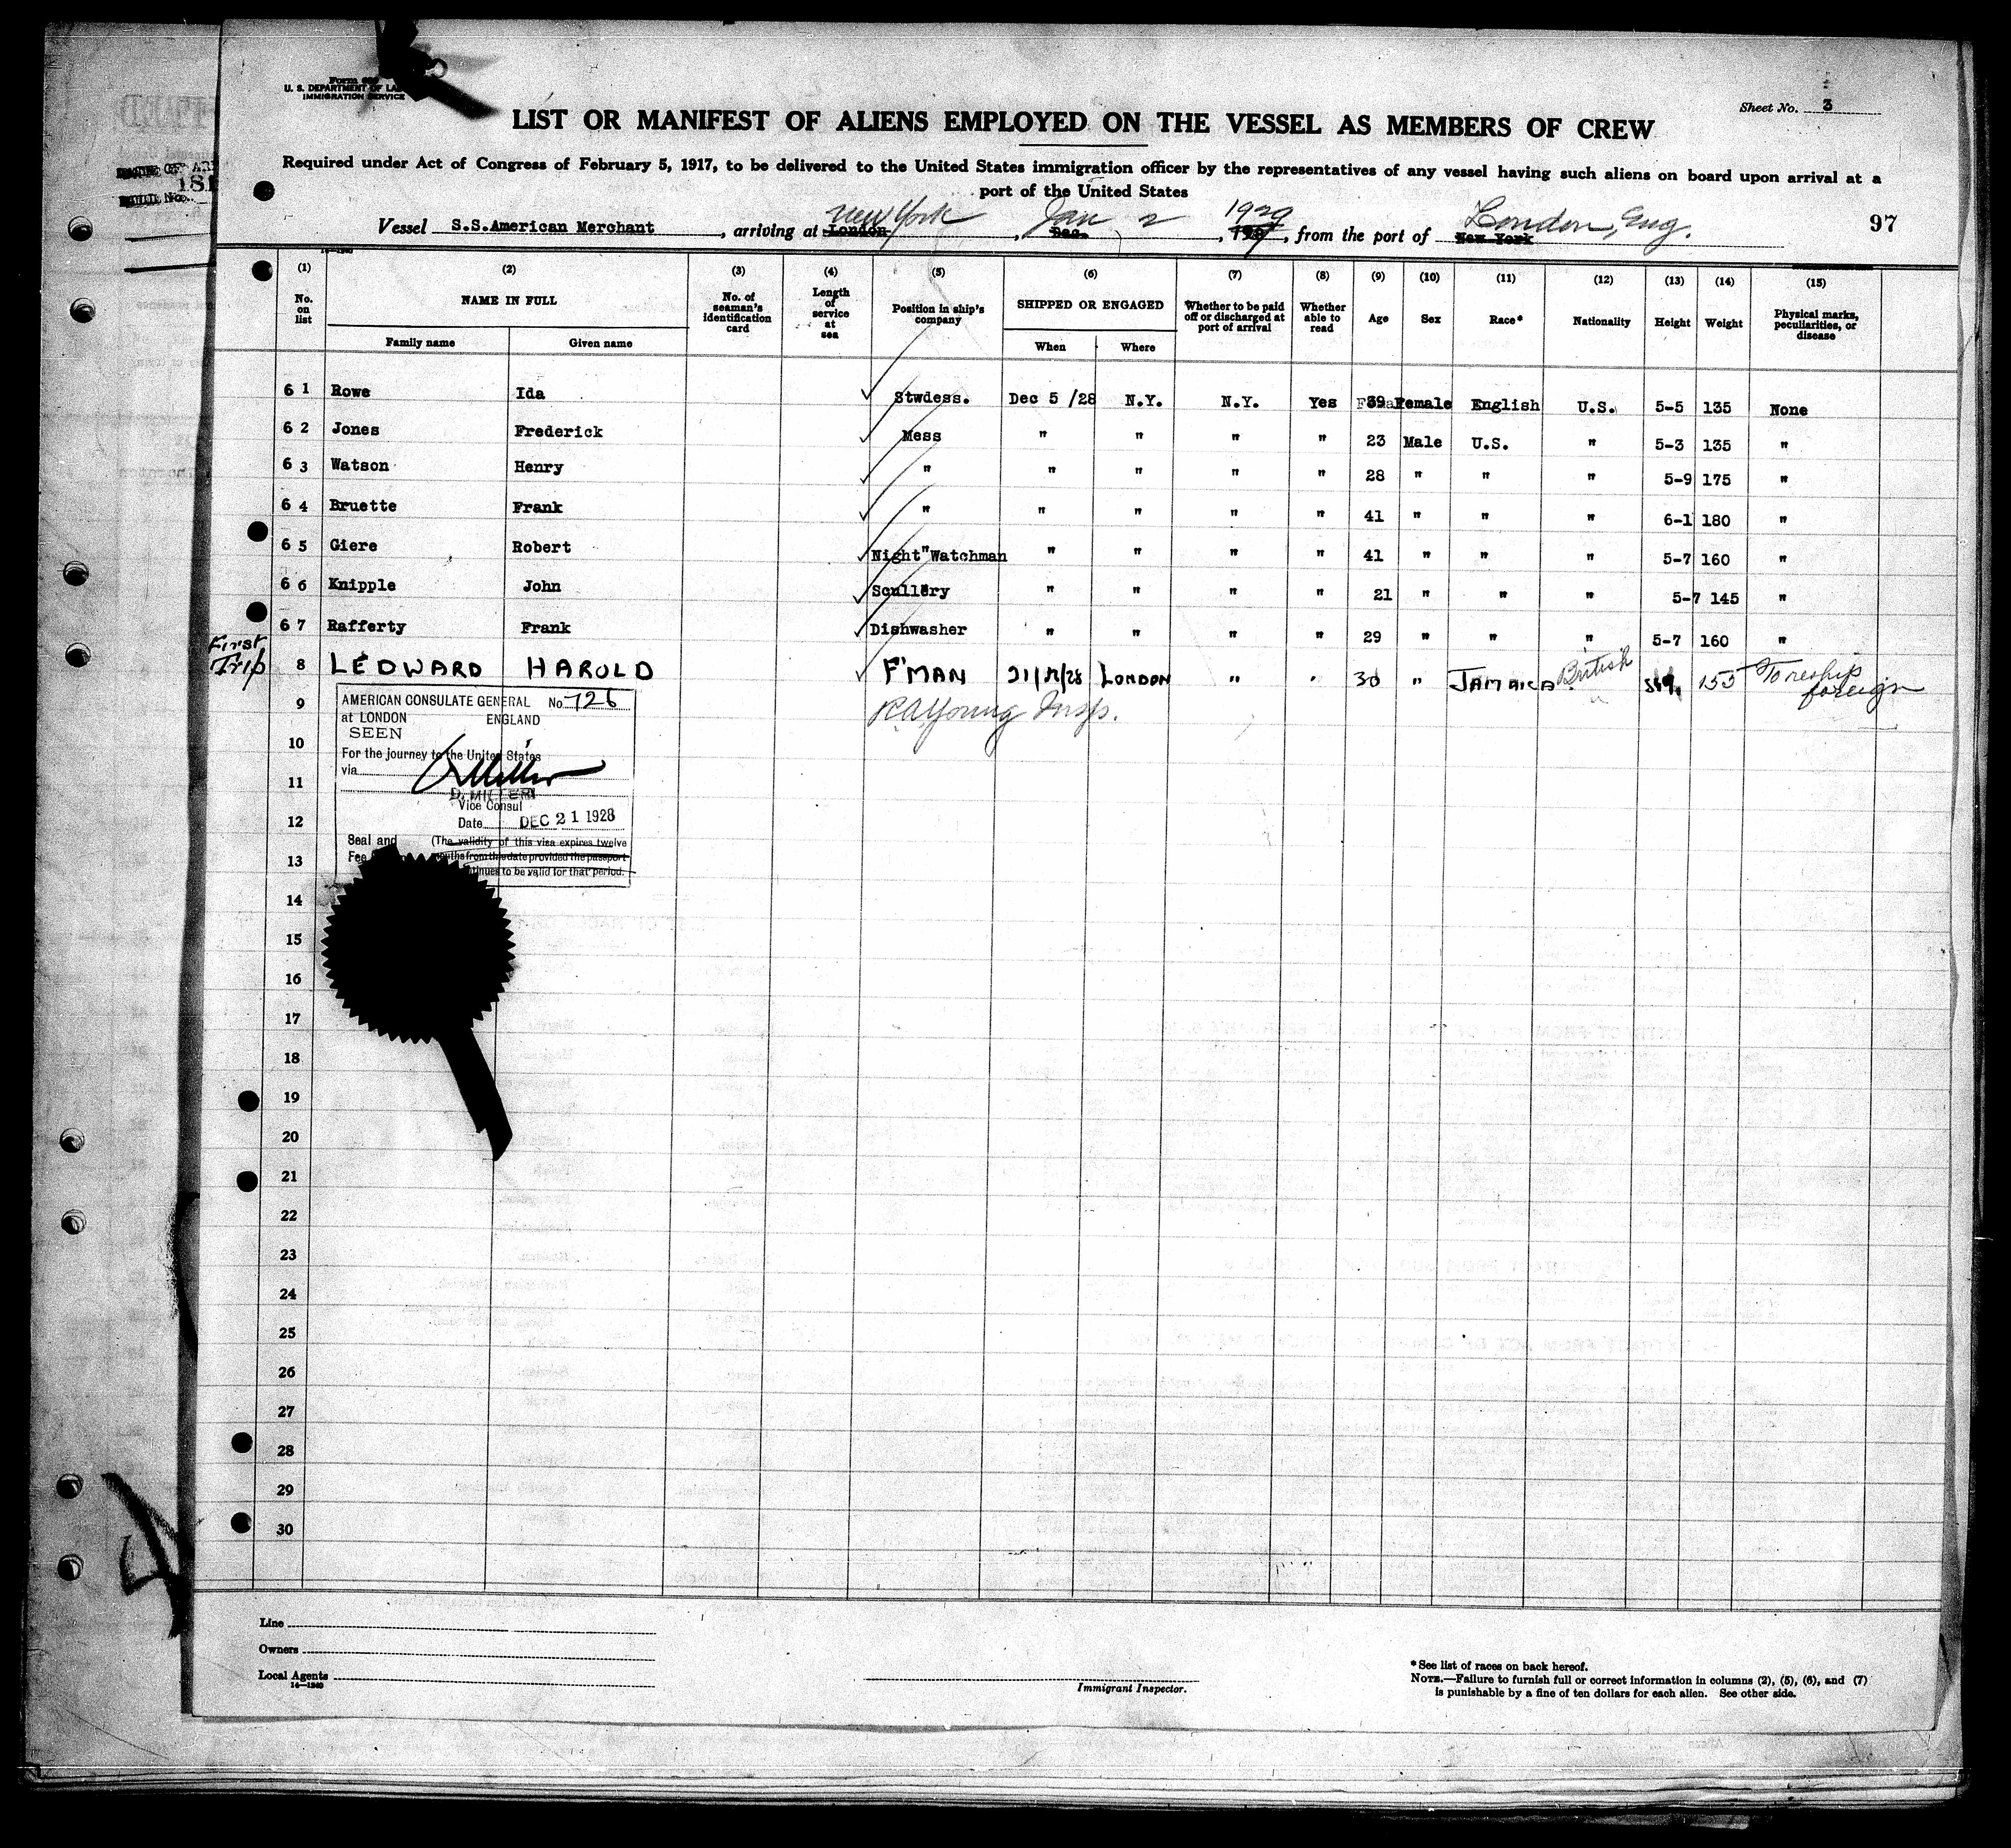 Form
U. S. DEPARTMENT OF LA
IMMIGRATION SERVICE
Sheet No. 3
LIST OR MANIFEST OF ALIENS EMPLOYED ON THE VESSEL AS MEMBERS OF CREW
Required under Act of Congress of February 5, 1917, to be delivered to the United States immigration officer by the representatives of any vessel having such aliens on board upon arrival at a
port of the United States
181
New York Jan 2 1929 London, Eng.
Vessel S.S.American Merchant, arriving at London, Dec., 192, from the port of New York
97
(1) (2) (3) (4) (5) (6) (7) (8) (9) (10) (11) (12) (13) (14) (15)
No. on list NAME IN FULL No. of seaman's identification card Length of service at sea Position in ship's company SHIPPED OR ENGAGED Whether to be paid off or discharged at port of arrival Whether able to read Age Sex Race* Nationality Height Weight Physical marks, peculiarities, or disease
Family name Given name When Where
6 1 Rowe Ida Stwdess. Dec 5 /28 N.Y. N.Y. Yes 39 Female English U.S. 5-5 135 None
6 2 Jones Frederick Mess " " " " 23 Male U.S. " 5-3 135 "
6 3 Watson Henry " " " " " 28 " " " 5-9 175 "
6 4 Bruette Frank " " " " " 41 " " " 6-1 180 "
6 5 Giere Robert Night"Watchman " " " " 41 " " " 5-7 160 "
6 6 Knipple John Scullery " " " " 21 " " " 5-7 145 "
6 7 Rafferty Frank Dishwasher " " " " 29 " " " 5-7 160 "
First Trip 8 LEDWARD HAROLD F'MAN 21/12/28 LONDON " " 30 " JAMAICA British 153 To reship foreign
9 R.A. Young Insp.
AMERICAN CONSULATE GENERAL No. 726
at LONDON ENGLAND
SEEN
For the journey to the United States
via
D. MILLER
Vice Consul
Date DEC 21 1928
Seal and (The validity of this visa expires twelve
Fee months from this date provided the passport
continues to be valid for that period.
10
11
12
13
14
15
16
17
18
19
20
21
22
23
24
25
26
27
28
29
30
Line
Owners
Local Agents
14—1240
Immigrant Inspector.
*See list of races on back hereof.
NOTE.—Failure to furnish full or correct information in columns (2), (5), (6), and (7)
is punishable by a fine of ten dollars for each alien. See other side.